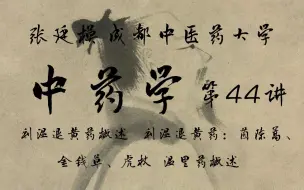 张廷模成都中医药大学
中药学 第44讲
利湿退黄药概述 利湿退黄药：茵陈蒿、
金钱草、虎杖 温里药概述